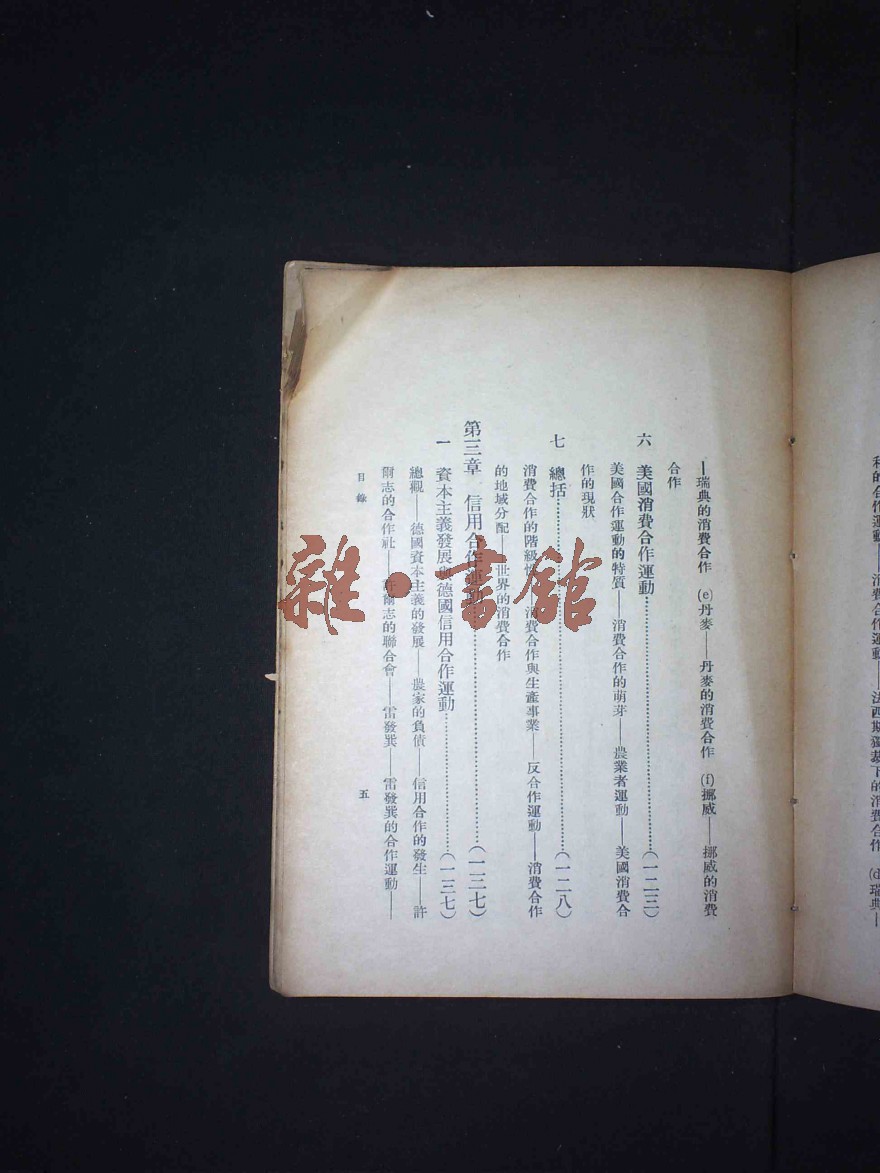 利的合作運動——消費合作運動——法西斯獨裁下的消費合作 (d)瑞典—
—瑞典的消費合作 (e)丹麥——丹麥的消費合作 (f)挪威——挪威的消費
合作
六 美國消費合作運動……(一二三)
美國合作運動的特質——消費合作的萌芽——農業者運動——美國消費合
作的現狀
七 總括……(一二八)
消費合作的階級性 消費合作與生產事業——反合作運動——消費合作
的地域分配——世界的消費合作
第三章 信用合作運動……(一三七)
一 資本主義發展與德國信用合作運動……(一三七)
總觀——德國資本主義的發展——農家的負債——信用合作的發生——許
爾志的合作社——許爾志的聯合會——雷發巽——雷發巽的合作運動——
目錄 五
雜·書館